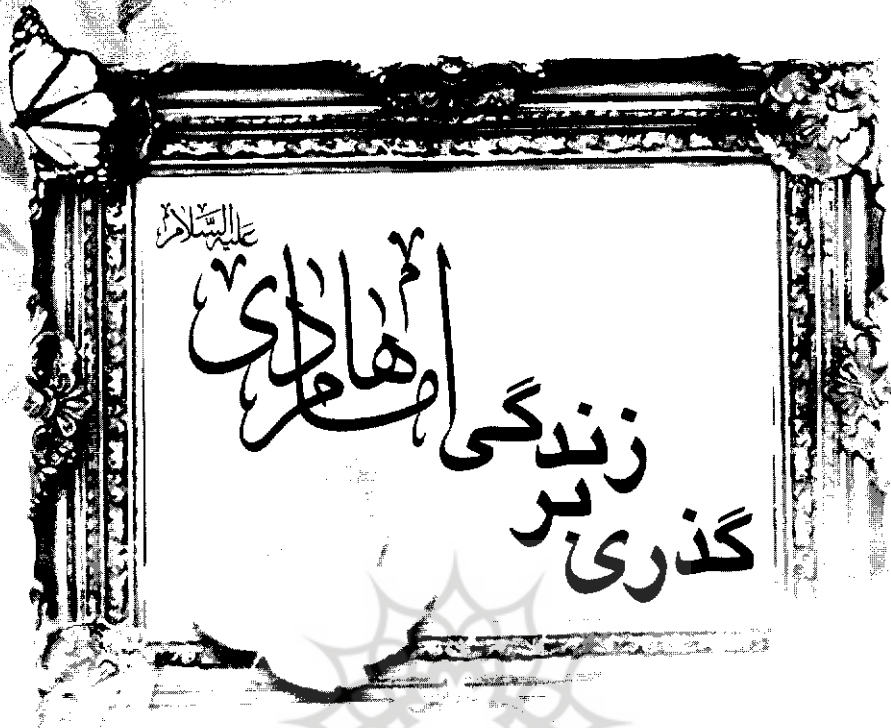 گذری بر زندگی
امام هادی علیه‌السلام